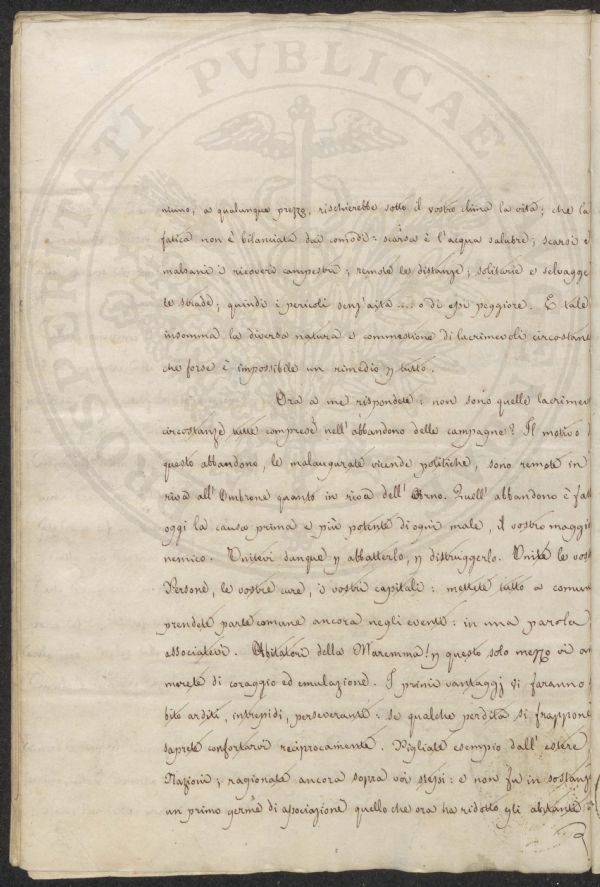 niuno, a qualunque prezzo, rischierebbe sotto il vostro clima la vita; che la
fatica non è bilanciata dai comodi: scarsa è l'acqua salubre; scarsi e
malsani i ricoveri campestri; remote le distanze; solitarie e selvagge
le strade; quindi i pericoli senz'aita .... o di essi peggiore. E tale
insomma la diversa natura e commestione di lacrimevoli circostan
che forse è impossibile un rimedio p tutto.
Ora a me rispondete: non sono quelle lacrimev
circostanze tutte comprese nell'abbandono delle campagne? Il motivo
questo abbandono, le malaugurate vicende politiche, sono remote in
riva all'Ombrone quanto in riva dell'Arno. Quell'abbandono è fat
oggi la causa prima e più potente di ogni male, il vostro maggi
nemico. Unitevi dunque p abbatterlo, p distruggerlo. Unite le vost
Persone, le vostre cure, i vostri capitali: mettete tutto a comun
prendete parte comune ancora negli eventi: in una parola
associatevi. Abitatori della Maremma! p questo solo mezzo vi an
merete di coraggio ed emulazione. I primi vantaggj vi faranno
bito arditi, intrepidi, perseveranti: se qualche perdita si frappone
saprete confortarvi reciprocamente. Pigliate esempio dall'estere
Nazioni; ragionate ancora sopra voi stessi: e non fu in sostanz
un primo germe di associazione quello che ora ha ridotto gli abitanti
PROSPERITATI PVBLICAE